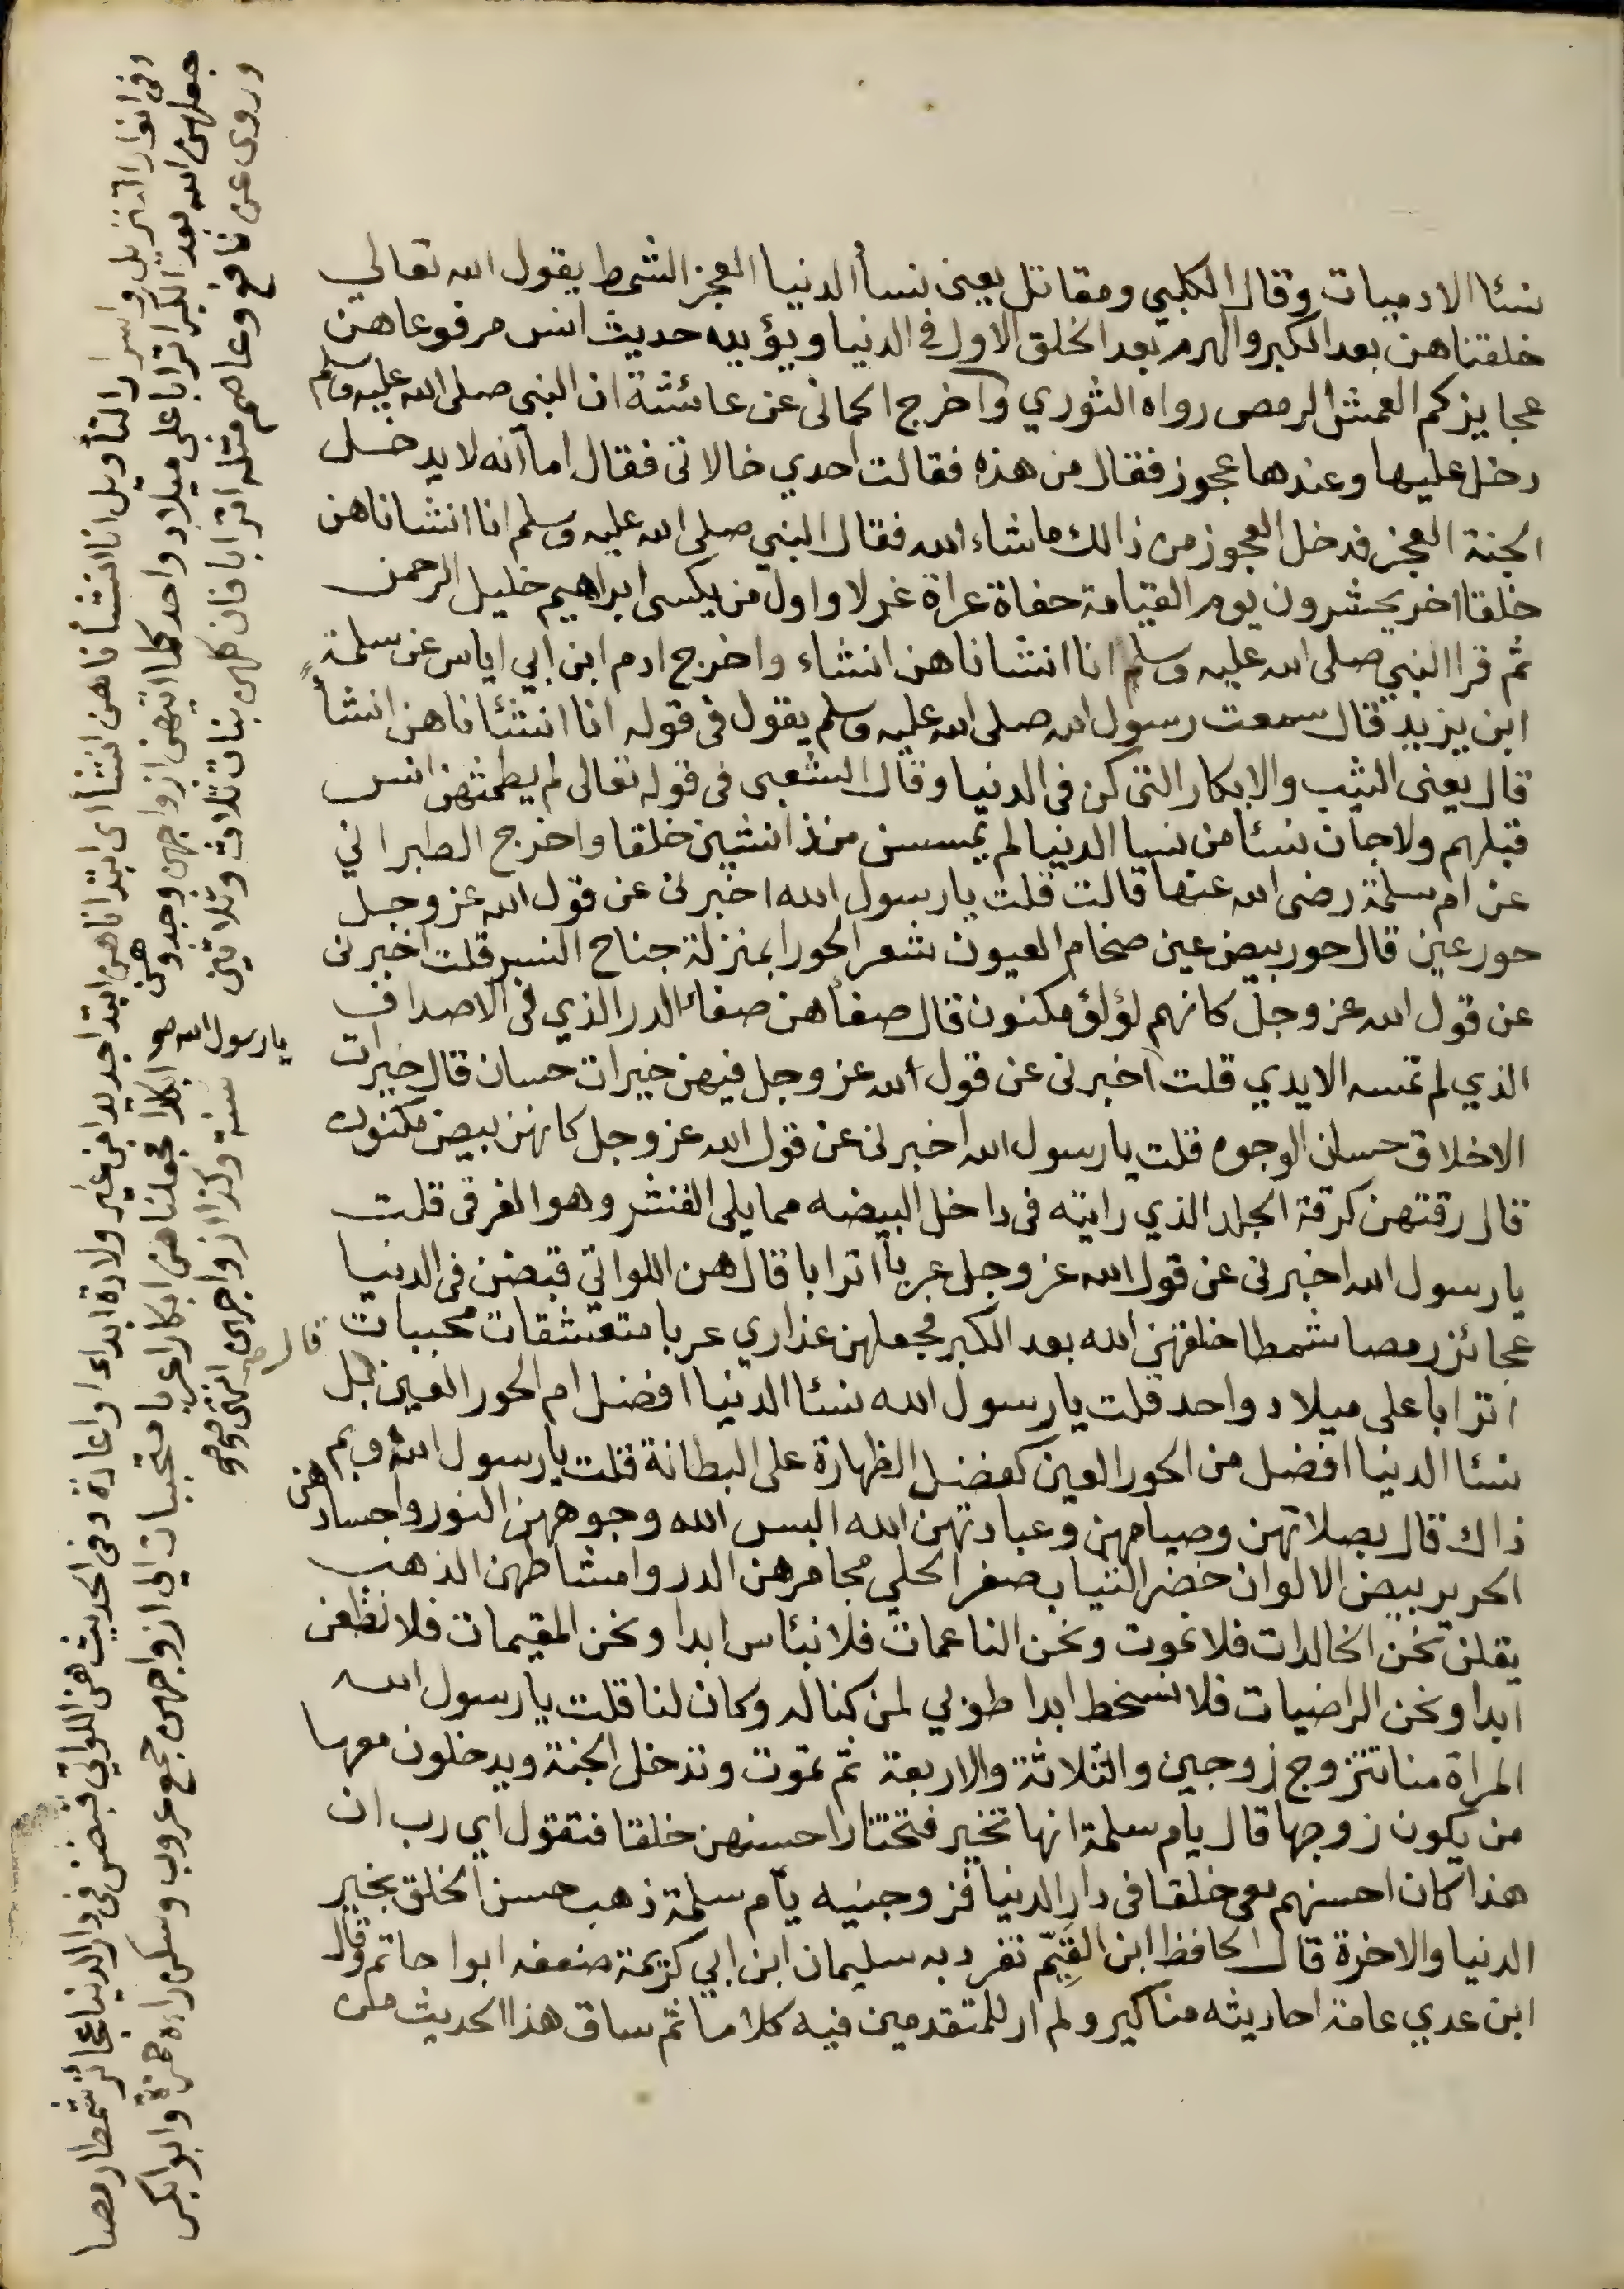 نسئا الادميات وقال الكلبي ومقاتل يعنى نسأ الدنيا العجز الشمط يقول الله تعالي
خلقناهن بعد الكبر والهرم بعد الخلق الاول في الدنيا ويؤيده حديث انس مرفوعا هن
عجايزكم العمش الرمص رواه الثوري وأخرج الحمانى عن عائشة ان النبى صلى الله عليه وسلم
دخل عليها وعندها عجوز فقال من هذه فقالت احدي خالاتى فقال اما انه لا يدخل
الجنة العجز فدخل العجوز من ذالك ماشاء الله فقال النبي صلى الله عليه وسلم انا انشاناهن
خلقا اخر يحشرون يوم القيامة حفاة عراة غرلا واول من يكسى ابراهيم خليل الرحمن
ثم قرا النبي صلى الله عليه وسلم انا انشاناهن انشاء واخرج ادم ابن ابي اياس عن سلمة
ابن يزيد قال سمعت رسول الله صلى الله عليه وسلم يقول فى قوله انا انشئاناهن انشأ
قال يعنى الثيب والابكار التى كن فى الدنيا وقال الشعبى فى قوله تعالى لم يطمثهن انس
قبلهم ولا جان نسئا من نسا الدنيا لم يمسسن منذ انشين خلقا واخرج الطبراني
عن ام سلمة رضى الله عنها قالت قلت يا رسول الله اخبرنى عن قول الله عز وجل
حور عين قال حور بيض عين ضخام العيون شعر الحورا بمنزلة جناح النسر قلت اخبرنى
عن قول الله عز وجل كانهم لؤلؤ مكنون قال صفأهن صفاء الدر الذي فى الاصداف
الذي لم تمسه الايدي قلت اخبرنى عن قول الله عز وجل فيهن خيرات حسان قال خيرات
الاخلاق حسان الوجوه قلت يا رسول الله اخبرنى عن قول الله عز وجل كانهن بيض مكنون
قال رقتهن كرقة الجلد الذي رايته فى داخل البيضه مما يلى القشر وهو الغرقى قلت
يا رسول الله اخبرنى عن قول الله عز وجل عربا اترابا قال هن اللواتي قبضن فى الدنيا
عجائز رمصا شمطا خلقهن الله بعد الكبر فجعلهن عذاري عربا متعشقات محببات
اترابا على ميلاد واحد قلت يا رسول الله نسئا الدنيا افضل ام الحور العين قال بل
نسئا الدنيا افضل من الحور العين كفضل الظهارة على البطانة قلت يا رسول الله وبم
ذاك قال بصلاتهن وصيامهن وعبادتهن الله البس الله وجوههن النور واجسادهن
الحرير بيض الالوان خضر الثياب صفر الحلي مجامرهن الدر وامشاطهن الذهب
يقلن نحن الخالدات فلا نموت ونحن الناعمات فلا نبئاس ابدا ونحن المقيمات فلا نظعن
ابدا ونحن الراضيات فلا نسخط ابدا طوبي لمن كنا له وكان لنا قلت يا رسول الله
المراة منا تتزوج زوجين والثلاثة والاربعة ثم تموت وتدخل الجنة ويدخلون معها
من يكون زوجها قال يام سلمة انها تخير فتختار احسنهن خلقا فتقول اي رب ان
هذا كان احسنهم معى خلقا فى دار الدنيا فزوجنيه يأم سلمة ذهب حسن الخلق بخير
الدنيا والاخرة قال الحافظ ابن القيّم تفرد به سليمان ابن ابي كريمة ضعفه ابوا حاتم وقال
ابن عدي عامة احاديثه مناكير ولم ار للمتقدمين فيه كلاما ثم ساق هذا الحديث من
وفى انوار التنزيل واسرار التأويل انا انشأناهن انشأ اى ابتداناهن ابتدا جديدا من غير ولادة ابداء او اعادة وفى الحديث هن اللواتي قبضن فى دار الدنيا عجائز شمطا رمصا
جعلهن الله بعد الكبر اترابا على ميلاد واحد كلما اتيهن ازواجهن وجدوهن ابكارا فجعلناهن ابكارا عربا متحببات الي ازواجهن جمع عروب وسكن راءه حمزة وابوا بكر
وروى عن نافع وعاصم مثله اترابا فان كلهن بنات ثلاث وثلاثين سنة وكذا ازواجهن انتهى
يا رسول الله